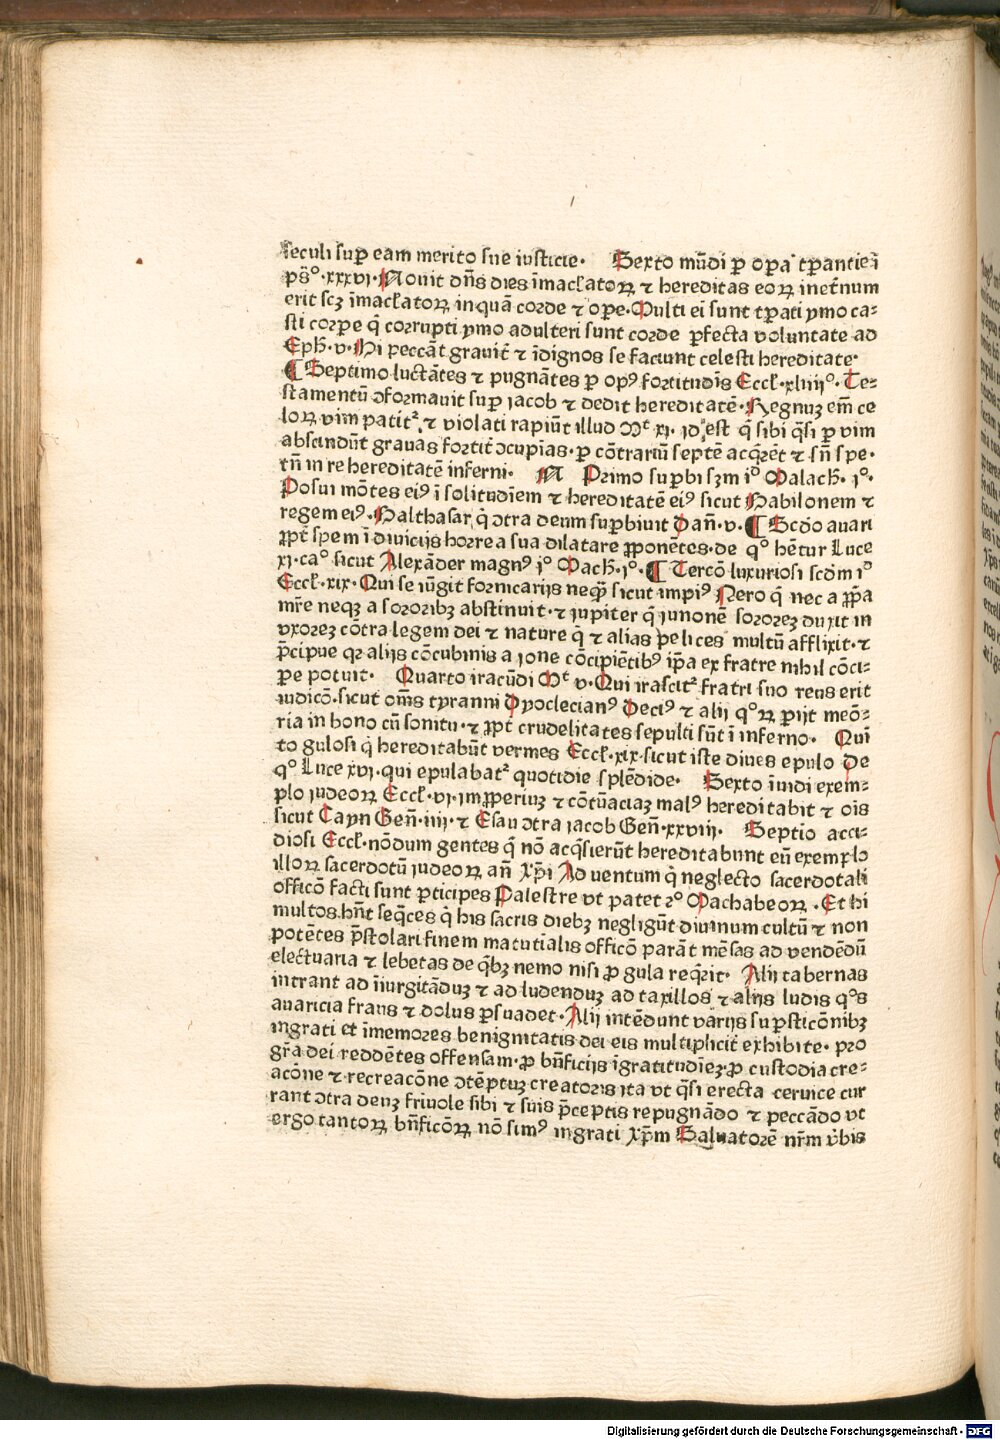 seculi sup̲ eam merito sue iusticie· Sexto mūdi ꝑ oꝑa tꝑantie ī
pō̈s·xxxvi·Nouit dn̄s dies īmaculatoꝝ ⁊ hereditas eoꝝ inet̄num
erit scꝫ īmaculatoꝝ in quā corde ⁊ oꝑe·Multi ei sunt tꝑati ymo ca⸗
sti corꝑe q̇ corrupti ymo adulteri sunt corde ꝑfecta voluntate ad
Eph̄·v·Hi peccāt grauit̄ ⁊ īdignos se faciunt celesti hereditate·
¶ Septimo luctātes ⁊ pugnātes ꝑ opꝰ fortitudīs Eccl̄·xliijº·Te⸗
stamentū ↄformauit suꝑ iacob ⁊ dedit hereditatē·Regnuꝫ em̄ ce
loꝝ vim patit᷑·⁊ violati rapiūt illud Mᵗ xi·id est q̇ sibi q̄si ꝑ vim
abscindūt grauas fortit̄ ↄcupīas·ꝑ cōtrariū septē acq̄rēt ⁊ sn̄ spe·
tn̄ in re hereditatē inferni· N Primo suꝑbi sꝫm iº Malach̄·iº·
Posui mōtes eiꝰ ī solitudīem ⁊ hereditatē eiꝰ sicut Babilonem ⁊
regem eiꝰ·Balthasar q̇ ↄtra deum suꝑbiuit Dan̄·v·¶ Scd̄o auari
ꝓpt̄ spem ī diuicijs horrea sua dilatare ꝓponētes·de qº hētur Luce
xi·caº sicut Alexāder magnꝰ iº Mach̄·iº·¶ Tercō luxuriosi scd̄m iº
Eccl̄·xix·Qui se iūgit fornicarijs neq̄ꝫ sicut impiꝰ Nero q̇ nec a ꝓp̄a
mr̄e neqꝫ a sororibꝫ abstinuit·⁊ iupiter q̇ iunonē sororeꝫ duxit in
vxoreꝫ cōtra legem dei ⁊ nature q̇ ⁊ alias pelices multū afflixit·⁊
p̄cipue qꝛ alijs cōcubinis a ione cōcipiētibꝰ ip̄a ex fratre nihil cōci⸗
pe potuit· Quarto iracūdi Mᵗ v·Qui irascit᷑ fratri suo reus erit
iudicō·sicut om̄s tyranni Dyoclecianꝰ Deciꝰ ⁊ alij qºꝝ ꝑijt meō⸗
ria in bono cū sonitu·⁊ ꝓpt̄ crudelitates sepulti sūt ī inferno· Quī
to gulosi q̇ hereditabūt vermes Eccl̄·xix·sicut iste diues epulo de
qº Luce xvi·qui epulabat᷑ quotidie splēdide· Sexto īuidi exem⸗
plo iudeoꝝ Eccl̄·vi·imꝓperiuꝫ ⁊ cōtūaciaꝫ malꝰ hereditabit ⁊ oīs
sicut Cayn Gen̄·iiij·⁊ Esau ↄtra iacob Gen̄·xxviij· Septīo acci⸗
diosi Eccl̄·nōdum gentes q̇ nō acq̄sierūt hereditabunt eū exemplo
illoꝝ sacerdotū iudeoꝝ an̄ Xp̄i Ad uentum q̇ neglecto sacerdotali
officō facti sunt ꝑticipes Palestre vt patet 2º Machabeoꝝ ·Et hi
multos·hn̄t seq̄ces q̇ his sacris diebꝫ negligūt diuinum cultū ⁊ non
potētes p̄stolari finem matutialis officō parāt mēsas ad vendēdū
electuaria ⁊ lebetas de q̄bꝫ nemo nisi ꝓ gula req̄rit· Alij tabernas
intrant ad īiurgitāduꝫ ⁊ ad ludenduꝫ ad taxillos ⁊ alijs ludis qºs
auaricia fraus ⁊ dolus ꝑsuadet·Alij intēdunt varijs suꝑsticōnibꝫ
ingrati et īmemores benignitatis dei eis multiplicit̄ exhibite· pro
gr̄a dei reddētes offensam·ꝓ bn̄ficijs īgratitudīeꝫ·ꝓ custodia cre⸗
acōne ⁊ recreacōne ↄtēptuꝫ creatoris ita vt q̄si erecta ceruice cur
rant ↄtra deuꝫ friuole sibi ⁊ suis p̄ceptis repugnādo ⁊ peccādo vt
ergo tantoꝝ bn̄ficōꝝ nō simꝰ ingrati Xp̄m Saluatorē nr̄m v̄bis
Digitalisierung gefördert durch die Deutsche Forschungsgemeinschaft - DFG